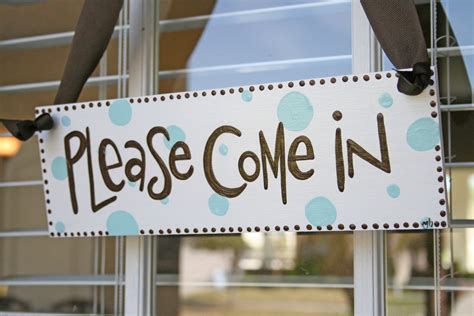 PLEASE COME IN